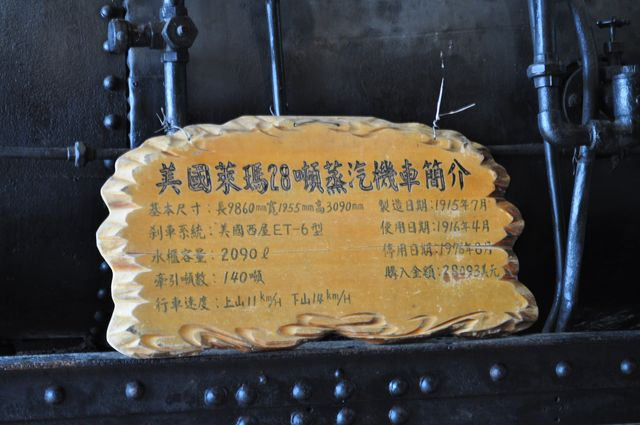 美國萊瑪28噸蒸汽機車簡介
基本尺寸：長9860mm寬1955mm高3090mm
刹車系統：美國西屋ET-6型
水櫃容量：2090ℓ
牽引噸數：140噸
行車速度：上山11km/H 下山14km/H
製造日期：1915年7月
使用日期：1916年4月
停用日期：1976年8月
購入金額：28093美元